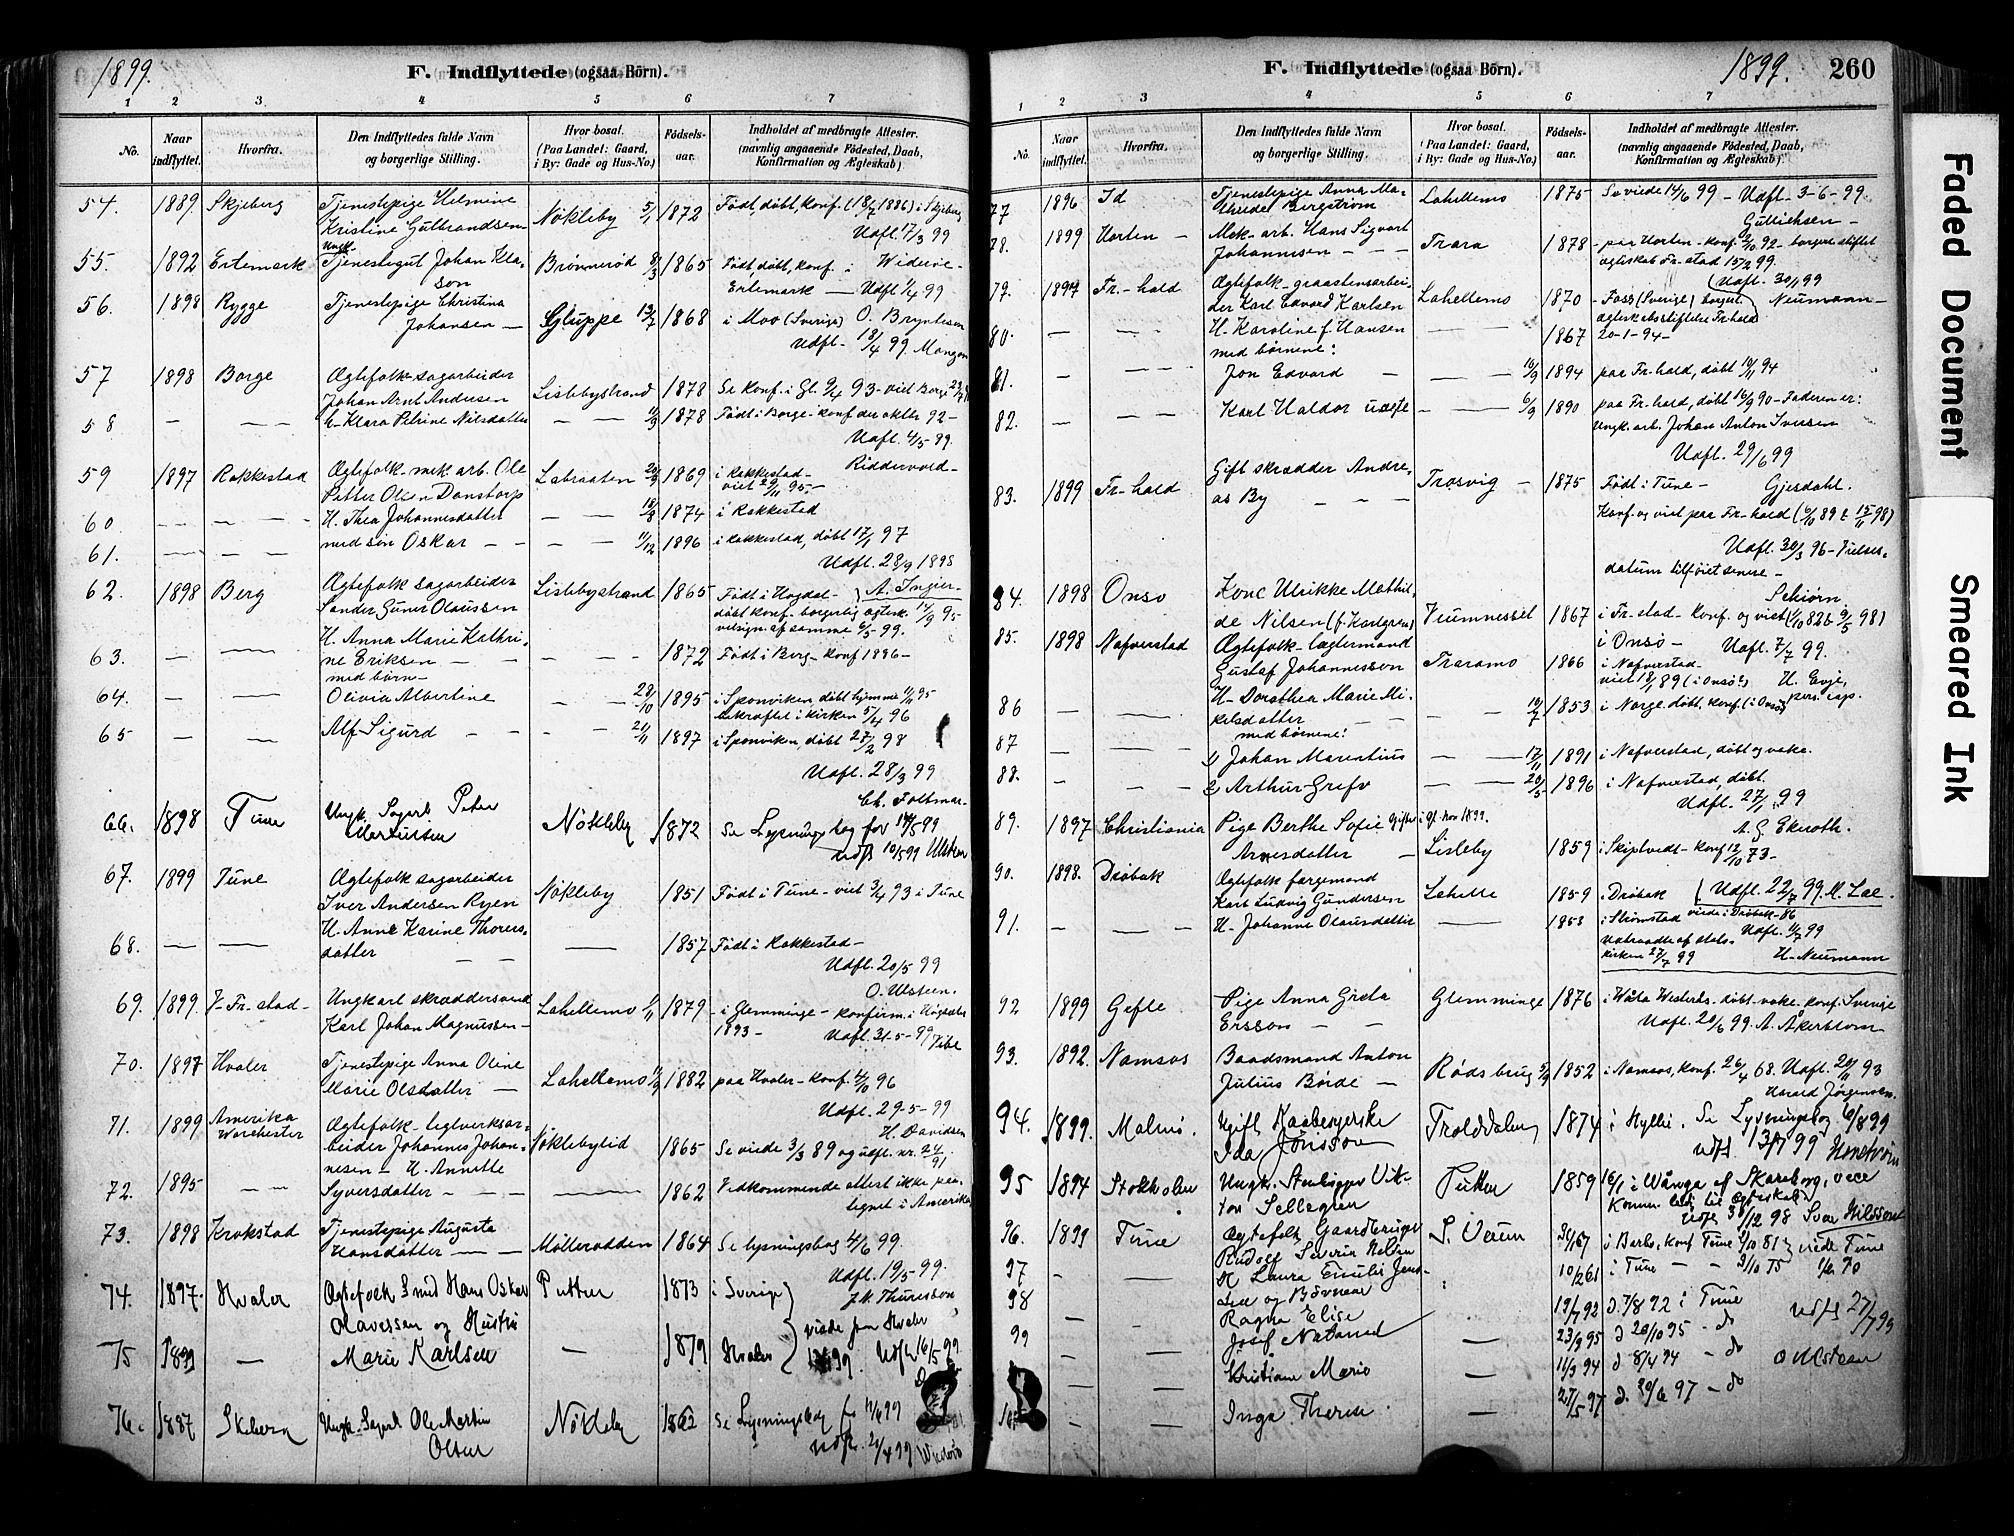 1899.
F. Indflyttede (ogsaa Börn).
1 2 3 4 5 6 7
No.
Naar indflyttet.
Hvorfra.
Den Indflyttedes fulde Navn og borgerlige Stilling.
Hvor bosat. (Paa Landet: Gaard, i By: Gade og Hus-No.)
Födsels-aar.
Indholdet af medbragte Attester. (navnlig angaaende Födested, Daab, Konfirmation og Ægteskab)
54. 1889 Skjeberg Tjenestepige Helmine
Kristine Gulbrandsen Nökleby 5/1 1872 Födt, döbt, konf. (18/7 1886) i Skjeberg
Udfl. 17/3 99
55. 1892 Ertemark Ungk. Tjenestegut Johan Kla-
son Brönneröd 8/3 1865 Födt, döbt, konf. i Wideröe-
Ertemark — Udfl. 1/4 99
56. 1898 Rygge Tjenestepige Christina
Johansen — Gluppe 13/7 1868 i Moo (Sverige) O. Bryntesen
Udfl. 18/4 99.
57 1898 Borge Ægtefolk sagarbeider
Johan Arnt Andersen Lislebystrand 1878 Se konf. i Gl. 9/4 93 - viet Borge
58 — — — H. Klara Petrine Nilsdatter — — 11/9 1878 Födt i Borge - konf der oktbr 92 -
Udfl. 4/5 - 99.
59 1897 Rakkestad Ægtefolk - mek. arb. Ole Riddervold -
Petter Olsen Danstorp Labraaten 20/9 1869 i Rakkestad -
viet 29/11 95. -
60. — — H. Thea Johannesdatter — — 18/8 1874 i Rakkestad
61. — — med sön Oskar — — 11/12 1896 i Rakkestad, döbt 17/1 97
Udfl. 28/9 1898
62. 1898 Berg Ægtefolk sagarbeider Lislebystrand 1865 Födt i Hogdal - A. Ingier -
Sander Guner Olaussen döbt konf. borgerlig ægtesk. 17/9 95
velsign. af samme 6/5 99.
63. — — H. Anna Marie Kathri-
ne Eriksen — — 1872 Födt i Berg - konf 1886 -
med börn -
64. — — Olivia Albertine — — 29/10 1895 i Sponviken döbt hjemme 11/11 95
bekræftet i kirken 5/4 96
65 — — Alf Sigurd — — 21/11 1897 i Sponviken, döbt 27/2 98
Udfl. 28/3 99
Ch. Foltmar.
66. 1898 Tune Ungk. Sagarb. Peter
Martinsen Nökleby 1872 Se Lysningsbog for 14/5 99
Udfl 10/5 99 Ulsteen
67. 1899 Tune Ægtefolk sagarbeider
Iver Andersen Ryen Nökleby 1851 Födt i Tune - viet 3/4 93 i Tune
68. — — H. Anne Karine Thores-
datter — — 1857 Födt i Rakkestad -
Udfl. 20/5 99
O. Ulsteen.
69. 1899. V-Fr. stad - Ungkarl skræddersvend Lahellemo 1/11 1879 - i Glemminge - konfirm. i
Karl Johan Magnussen - 1893 - Udfl. 31-5-99 Vibe
70. 1897 Hvaler Tjenestepige Anna Oline
Marie Olsdatter — Lahellemo 1882 paa Hvaler - konf. 4/10 96
Udfl. 29-5-99
71. 1899 Amerika Worchester Ægtefolk - teglverksar- H. Davidsen
beider Johannes Johan- Nöklebytid 1865 Se viede 3/3 89 og udfl. nr. 24/91.
nesen - H. Annette
72. 1895 — — Syversdatter — — 1862 Vedkommende attest ikke paa-
tegnet i Amerika
73. 1898 Krokstad Tjenestepige Augusta
Hansdatter — — Mölleradden 1864 Se lysningsbog 4/6 99.
Udfl. 19/5 - 99.
J. M. Thuresson
74. 1897. Hvaler Ægtefolk Smed Hans Oskar Putten 1873 i Sverige
Olavessen og Hustru viede paa Hvaler
75 1899 — Marie Karlsen — 1879 Hvaler Udfl. 16/5 99
76. 1887 Skeberg Ungk. Sagarb. Ole Martin
Olsen Nökleby 1862 Se Lysningsbog for 11/6 99
Udfl. 20/4 99 Wideröe
F. Indflyttede (ogsaa Börn).
1899. 260
1 2 3 4 5 6 7
No.
Naar indflyttet.
Hvorfra.
Den Indflyttedes fulde Navn og borgerlige Stilling.
Hvor bosat. (Paa Landet: Gaard, i By: Gade og Hus-No.)
Födsels-aar.
Indholdet af medbragte Attester. (navnlig angaaende Födested, Daab, Konfirmation og Ægteskab)
77 1896 Id Tjenestepige Anna Ma-
thilde Bergström Lahellemo 1875 Se viede 14/6 99 - Udfl. 3-6-99.
Gullichsen -
78. 1899 Horten - Mek. arb. Hans Sigvart
Johannesen — — Trara 1878 - paa Horten - konf. 2/10 92 - borgerl. stiftet
ægteskab Fr. stad 15/2 99.
Udfl. 30/1 99
79. 1897 Fr.-hald Ægtefolk - graastensarbei-
der Karl Edvard Karlsen Lahellemo 1870 - Foss (Sverige) borgerl. Neumann -
Ægteskabsstiftelse Fr.hald
80. — — H. Karoline f. Hansen 1867 20-1-94 -
med börnene:
81. — — Jon Edvard — — 19/9 1894 paa Fr.hald, döbt 19/11 94
82. — — Karl Haldor uægte — — 6/9 1890 paa Fr.hald, döbt 16/9 90 - Faderen er:
Ungk. arb. Johan Anton Iversen
Udfl. 29/6 99
83. 1899 Fr-hald Gift skrædder Andre-
as By — — Trosvig — 1875 Födt i Tune - Gjesdahl.
Konf. og viet paa Fr-hald (6/10 89 & 15/11 98)
Udfl. 30/3 96 - Vielses-
datum tilföiet senere -
84. 1898 Onsö Kone Ulrikke Mathil- Schiörn
de Nilsen (f. Karlgren) Veumnesset 1867 i Fr. stad - konf. og viet (1/10 82 & 9/5 98)
i Onsö - Udfl. 7/7 99.
85. 1898 Nafverstad Ægtefolk - lægtermand
Gustaf Johannesson Traramo 1866 i Nafverstad -
viet 18/1 89 (i Onsö?) H. Evje,
86 — — H. Dorothea Marie Mi-
kelsdatter — — 19/7 1853 i Norge döbt. konf. (i Onsö) pers. cap.
med börnene:
87 — — 1) Johan Marentius — — 17/11 1891 i Nafverstad, döbt og vakc.
88. — — 2) Arthur Grefv — — 20/5 1896 i Nafverstad, döbt.
Udfl. 27/1 99
A. G. Ekeroth.
89. 1897 Christiania Pige Berthe Sofie Giftes i Gl. nov 1899.
Arnesdatter — Lisleby 1859 i Skiptvedt - konf 12/10 73 -
90. 1898. Dröbak Ægtefolk færgemand
Karl Ludvig Gundersen Lahelle 1859 i Dröbak Udfl. 22/7 99. M. Lae.
91. — — H. Johanne Olausdatter — 1858 i Strömstad viede i Dröbak - 86
Udtraadte af stats- Udfl. 11/7 99
kirken 27/7 99 H. Neumann
92 1899 Gefle Pige Anna Greta
Ersson — — Glemminge 1876 i Wåla Westerås. döbt. vakc. konf. Sverige
Udfl. 20/6 99. A. Åkerblom
93. 1892. Namsos Baadsmand Anton
Julius Börde — Rödsbrug 5/9 1852 i Namsos, konf. 26/4 68. Udfl. 20/11 93
Harald Jörgensen.
94. 1899. Malmö. Ugift
Ida Jönsson Trolddalen 1874 i Hyllie. Se Lysningsbog 6/8 99
95 1894 Stokholm Ungk. Stenhugger Vik-
tor Sellegren Putten 1859 16/1 i Wånga af Skaraborg, vacc
Konfirm. ledig til Ægteskab
Udfl. 12 98 Svar Nilsson
96. 1899 Tune Ægtefolk Gaardbruger
Rudolf Severin Nelsen S. Veum 1867 i Borke, Konf Tune 2/10 81 viede Tune
97 — — H Laura Emilie Jens- 10/2 61 i Tune — — 3/10 75
98 Datter og Börnene
Ragna Elise 19/7 92 D. 7/8 92 i Tune Udfl 27/7 99
99 Josef Natanael — 23/9 95 D 20/10 95 - do
— — Kristiane Marie 11/3 94 D 8/4 94 - do O Ulsteen
— — Inga Therese — 27/5 97 D. 20/6 97 - do
Faded Document
Smeared Ink